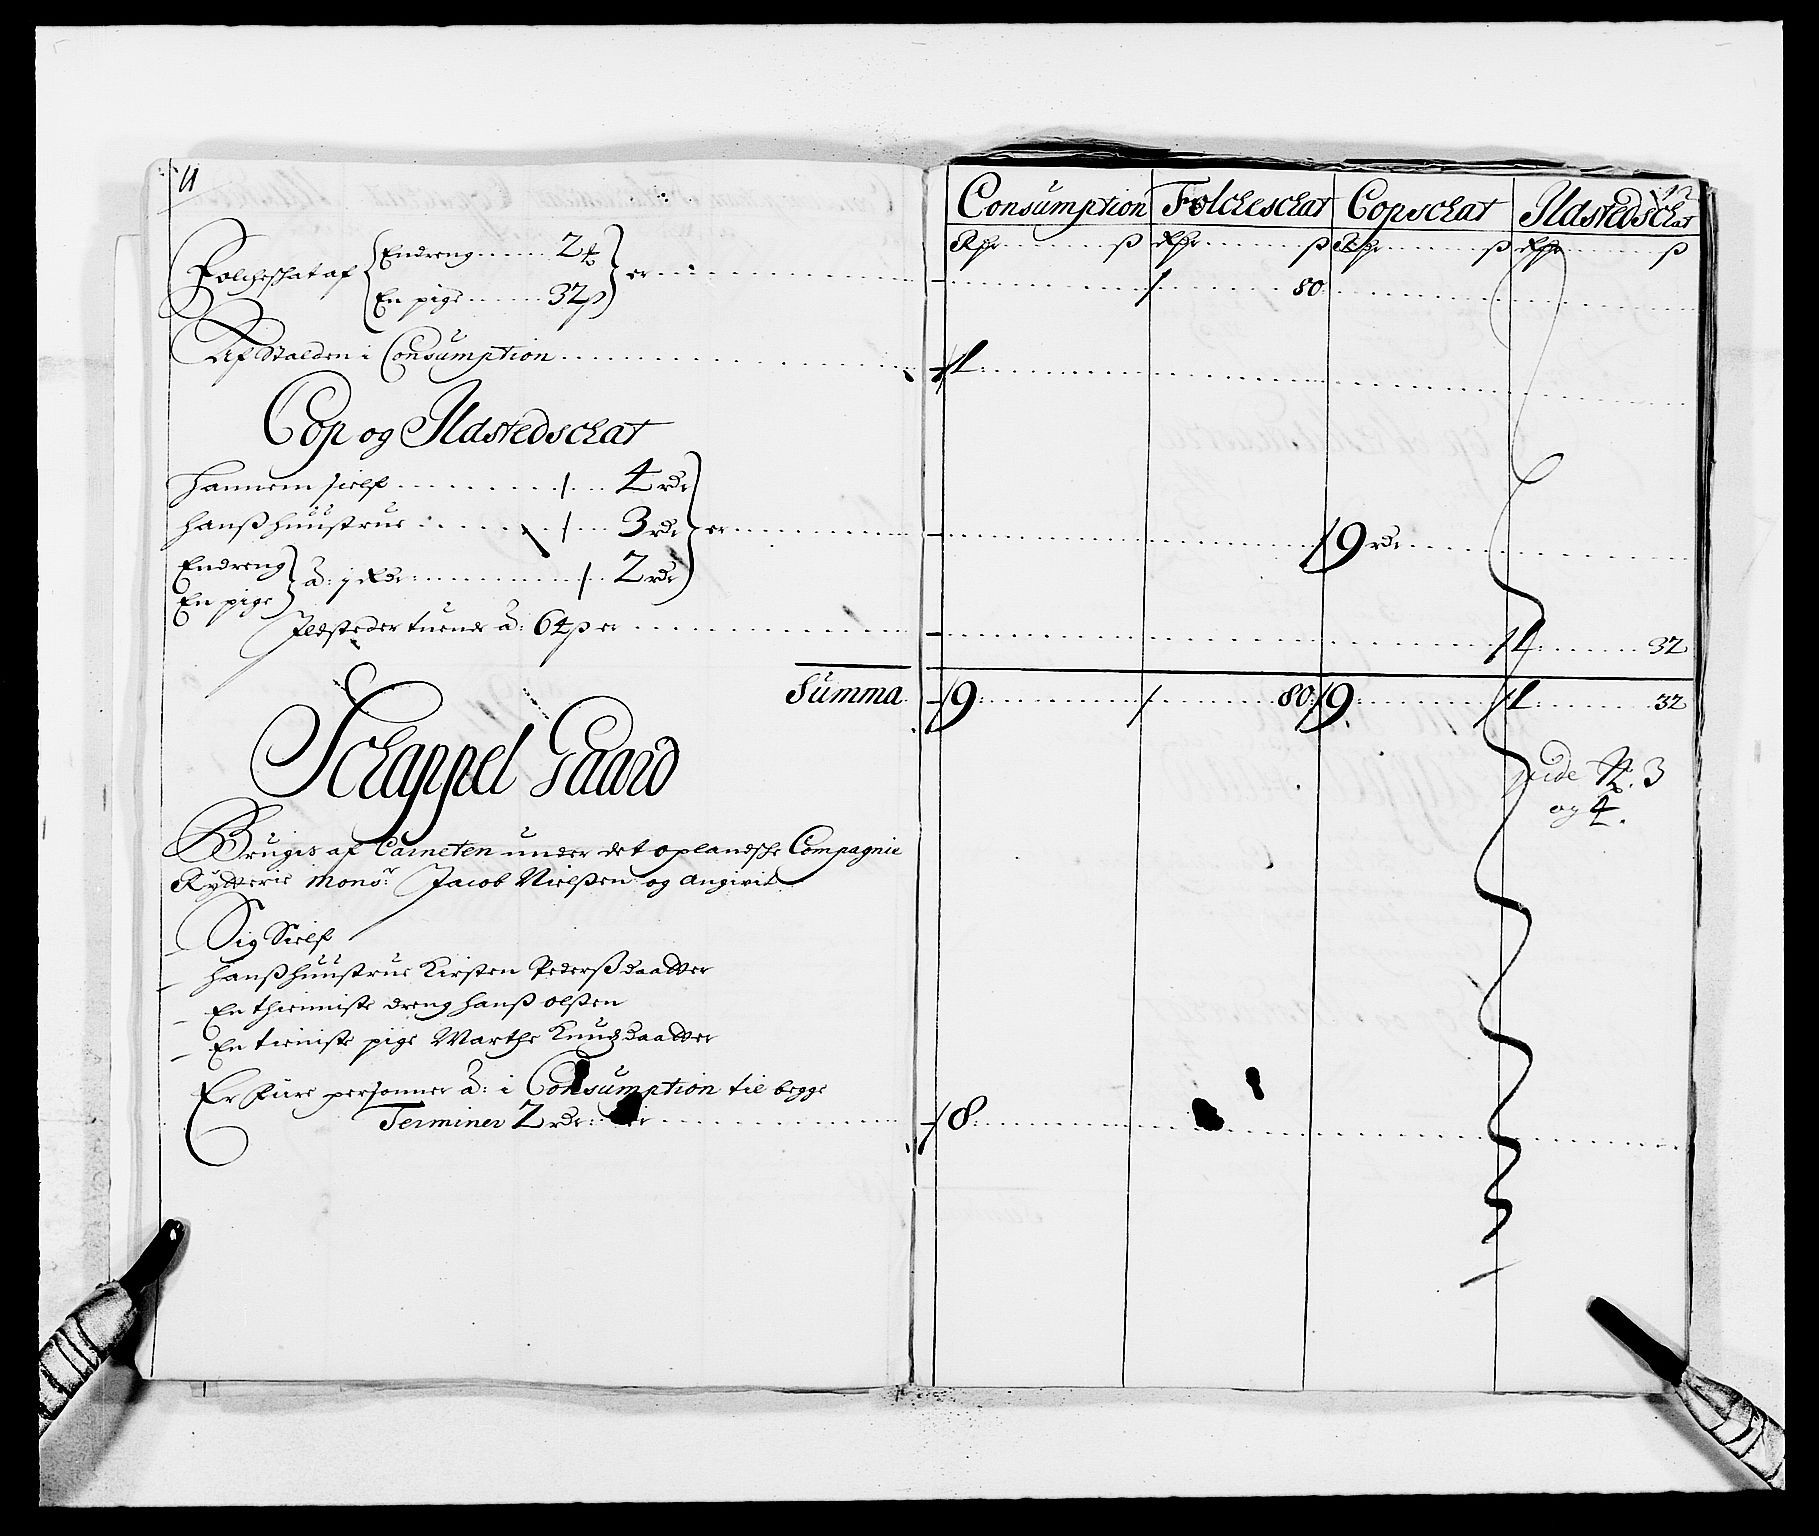 11
Folcheschat af { En dreng ...... 2 #
En pige ...... 32 ß } er
Af Stalden i Consumption
Cop og Ildstedschat
Hannem sielf ........ / ... 4 rdr
Hanß huustrue ........ / ... 3 rdr } er
En dreng
En pige } a: j Rdr: ........ / ... 2 rdr
Ildsteder tuende a: 64 ß er
Summa
Schappel Gaard
Bruges af Corneten under det oplandske Compagnie
Rytterie Monsr Jacob Nielßen og angivit
Sig Sielf
Hanß huustrue Kirsten Pederßdaatter
En thienniste dreng Hanß Olßen
En tieniste pige Marthe Knudzdaatter
Er fiire personner a: i Consumption til begge
Terminer 2 rdr: er
12
Consumption Folcheschat Copschat Ildstedschat
Rdr ß Rdr ß Rdr ß Rdr ß
/ 80
/1
/9 rdr
/1 32
/9 / 80 /9 /1 32
vide No. 3
og 4.
/8